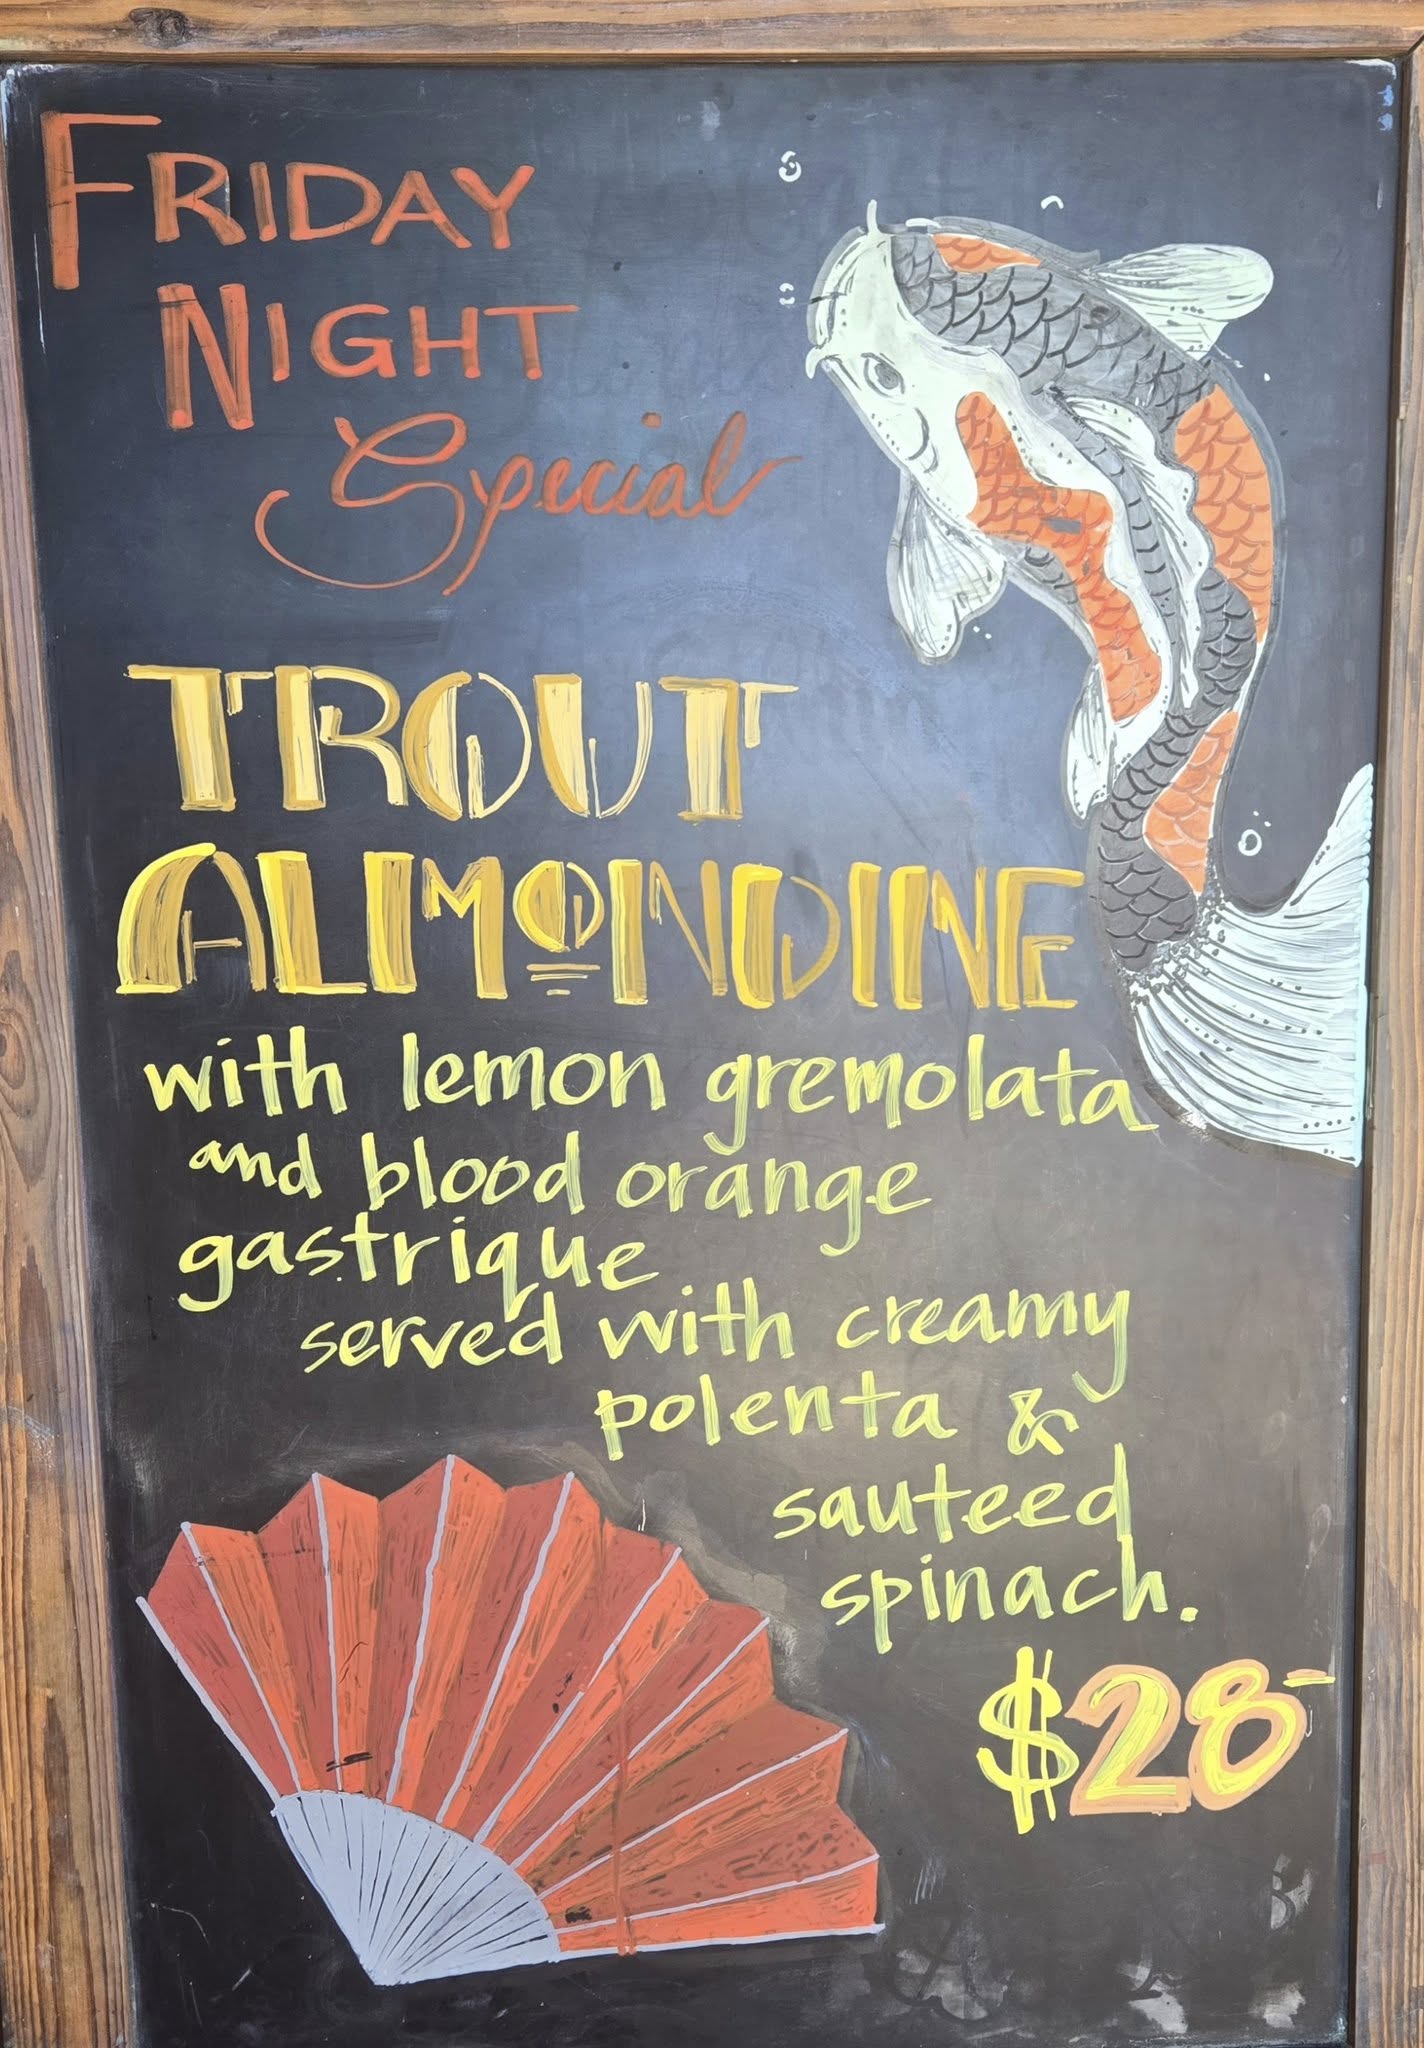 FRIDAY
NIGHT
Special
TROUT
ALMONDINE
with lemon gremolata
and blood orange
gastrique
served with creamy
polenta &
sauteed
spinach.
$28-